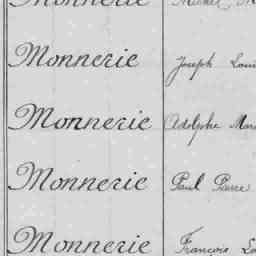 Monnerie Michel
Monnerie Joseph Loui
Monnerie Adolphe Mar
Monnerie Paul Pierre
Monnerie François Lo